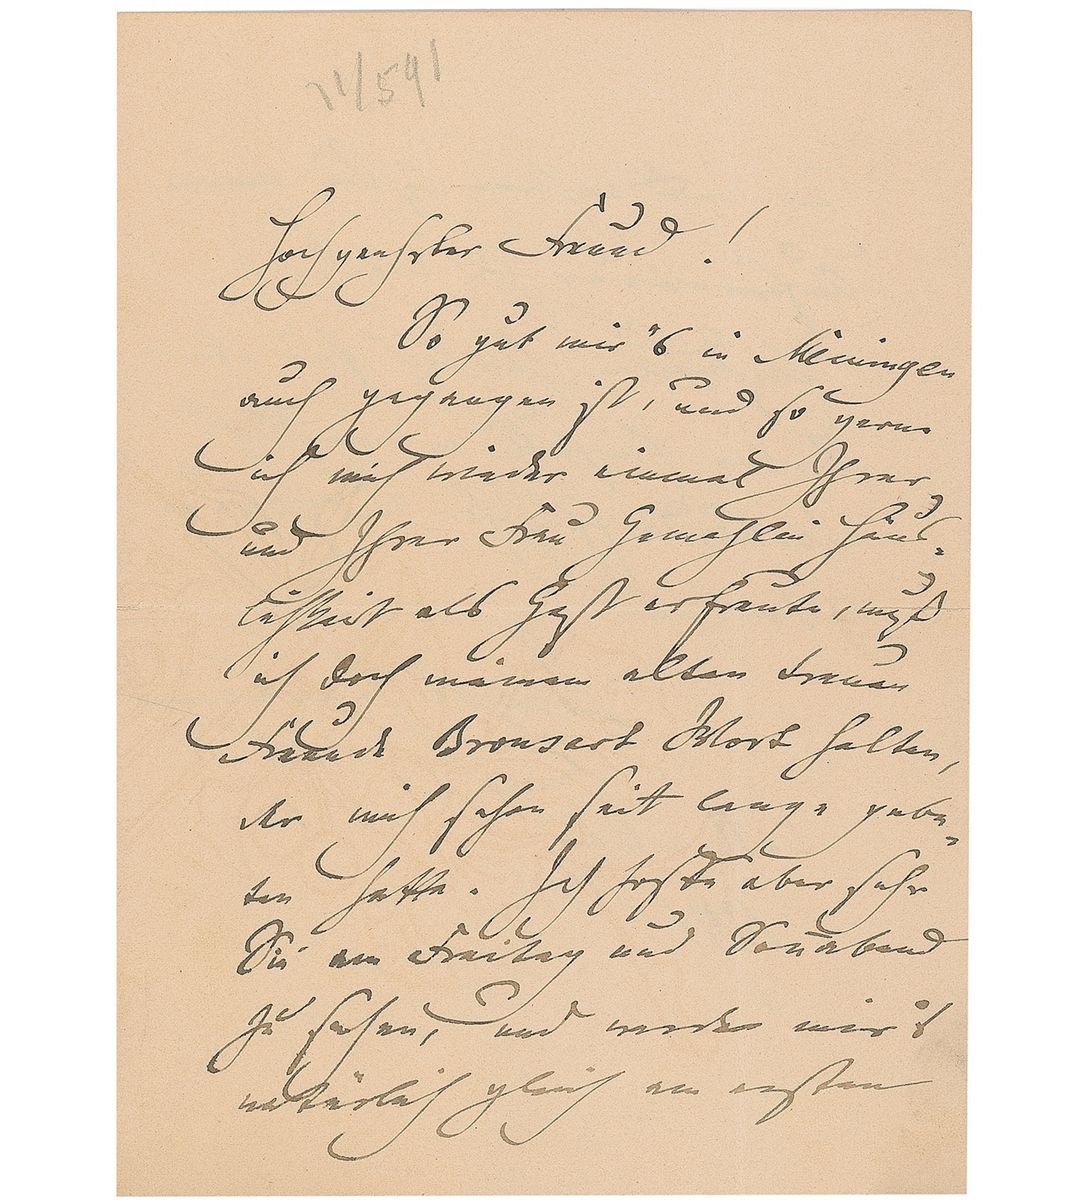 71/591
Hochgeehrter Freund!
So gut mir's in Meiningen
auch gegangen ist, und so gern
ich mich wieder einmal Ihrer
und Ihrer Frau Gemahlin Häus-
lichkeit als Gast erfreute, muß
ich doch meinem alten treuen
Freunde Bronsart Wort halten,
der mich schon seit lange gebe-
ten hatte. Ich hoffe aber sehr
Sie am Freitag und Sonnabend
zu sehen, und werde mir's
natürlich gleich am ersten